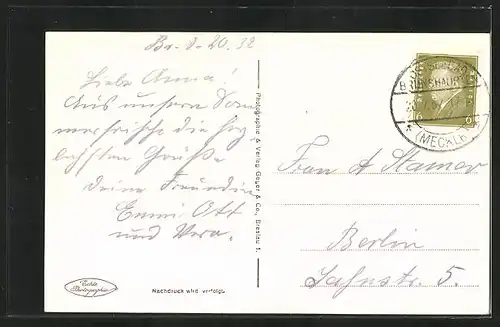 Liebe Anna!
Aus unserer Som
merfrische die herz
lichsten Grüße
deine Freundin
Emmi Ott
und Vera.
Photographie & Verlag Geger & Co., Breslau 1.
Echte
Photographie
Nachdruck wird verfolgt.
BRUNSHAUPTEN
(MECKLB)
6 6
Frau A Stamer
Berlin
Jahnstr. 5.